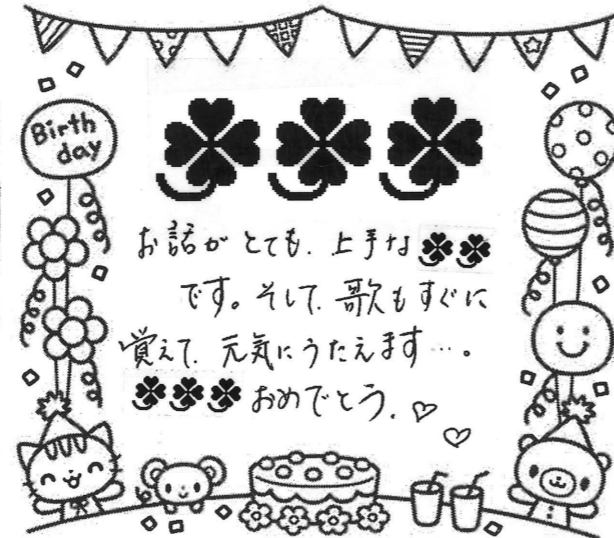 Birth
day
お話がとても、上手な
です。そして、歌もすぐに
覚えて、元気にうたえます…。
おめでとう。